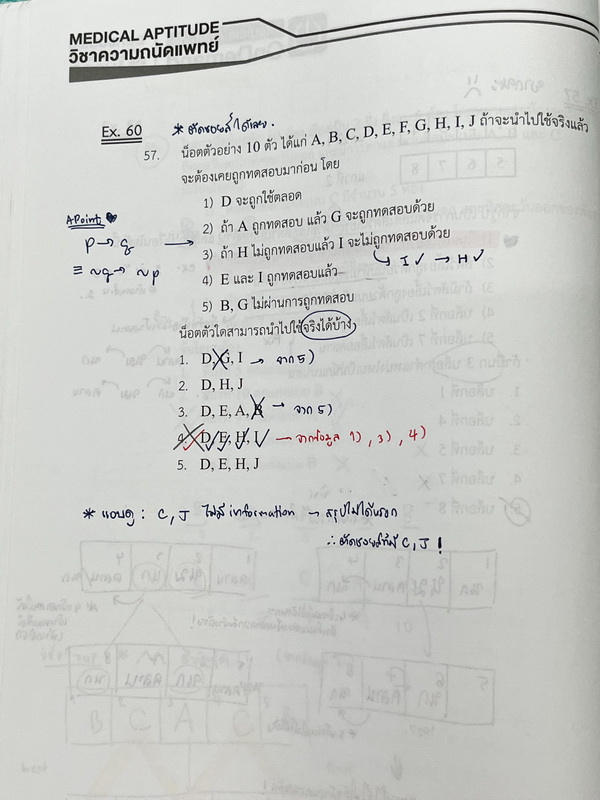 MEDICAL APTITUDE
วิชาความถนัดแพทย์
Ex. 60
* ตัดชอยส์ได้เลย.
57. น็อตตัวอย่าง 10 ตัว ได้แก่ A, B, C, D, E, F, G, H, I, J ถ้าจะนำไปใช้จริงแล้ว
จะต้องเคยถูกทดสอบมาก่อน โดย
1) D จะถูกใช้ตลอด
2) ถ้า A ถูกทดสอบ แล้ว G จะถูกทดสอบด้วย
3) ถ้า H ไม่ถูกทดสอบแล้ว I จะไม่ถูกทดสอบด้วย
A Point
p → q →
≡ ~q → ~p
↳ I ✓ → H ✓
4) E และ I ถูกทดสอบแล้ว
5) B, G ไม่ผ่านการถูกทดสอบ
น็อตตัวใดสามารถนำไปใช้จริงได้บ้าง
1. D, G, I → จาก 5)
2. D, H, J
3. D, E, A, B → จาก 5)
4. D, E, H, I → จากข้อมูล 1), 3), 4)
5. D, E, H, J
* แอบดู : C, J ไม่มี information → สรุปไม่ได้หรอก
∴ ตัดชอยส์ที่มี C, J !